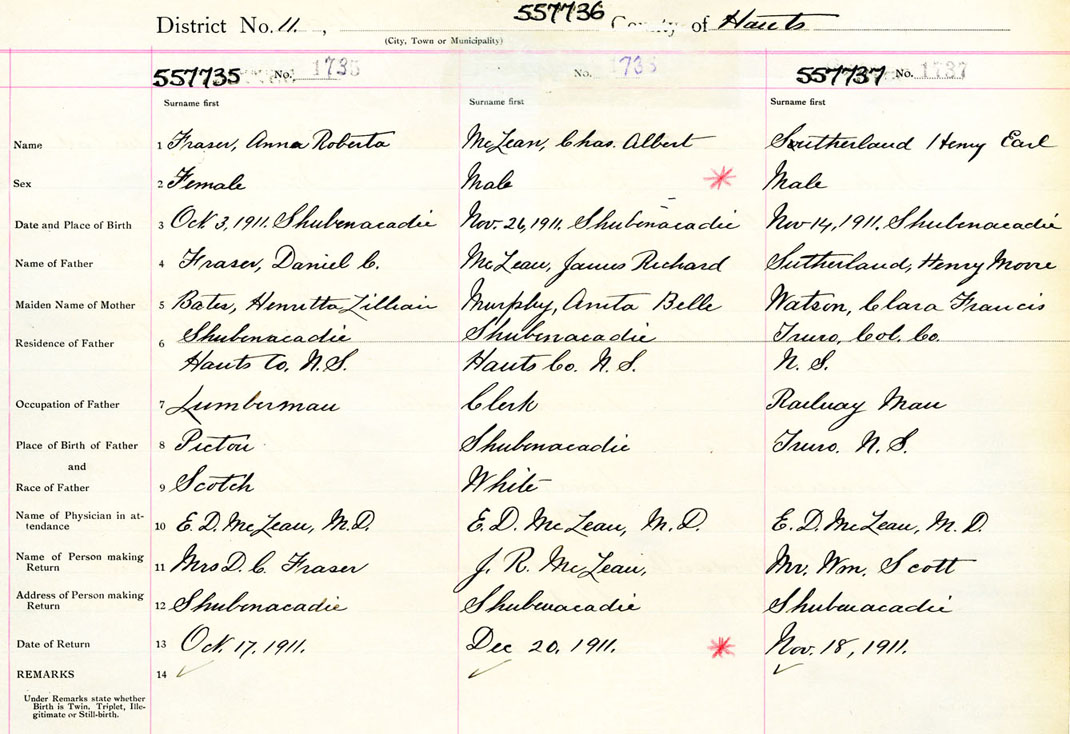 557736
District No. 11. , County of Hants
(City, Town or Municipality)
557735 No. 1735 No. 1736 557737 No. 1737
Surname first Surname first Surname first
Name 1 Fraser, Anna Roberta McLean, Chas. Albert Sutherland Henry Earl
Sex 2 Female Male Male
Date and Place of Birth 3 Oct 3, 1911. Shubenacadie Nov. 26, 1911. Shubenacadie Nov 14, 1911. Shubenacadie
Name of Father 4 Fraser, Daniel C. McLean, James Richard Sutherland, Henry Moore
Maiden Name of Mother 5 Bates, Henretta Lillian Murphy, Anita Belle Watson, Clara Francis
Residence of Father 6 Shubenacadie Shubenacadie Truro, Col. Co.
Hants Co. N.S. Hants Co. N.S. N.S.
Occupation of Father 7 Lumberman Clerk Railway Man
Place of Birth of Father 8 Pictou Shubenacadie Truro. N.S.
and
Race of Father 9 Scotch White
Name of Physician in at-
tendance 10 E.D. McLean, M.D. E.D. McLean, M.D. E.D. McLean, M.D.
Name of Person making
Return 11 Mrs D. C. Fraser J. R. McLean, Mr. Wm. Scott
Address of Person making
Return 12 Shubenacadie Shubenacadie Shubenacadie
Date of Return 13 Oct. 17. 1911. Dec 20. 1911. Nov. 18, 1911.
REMARKS 14
Under Remarks state whether
Birth is Twin, Triplet, Ille-
gitimate or Still-birth.